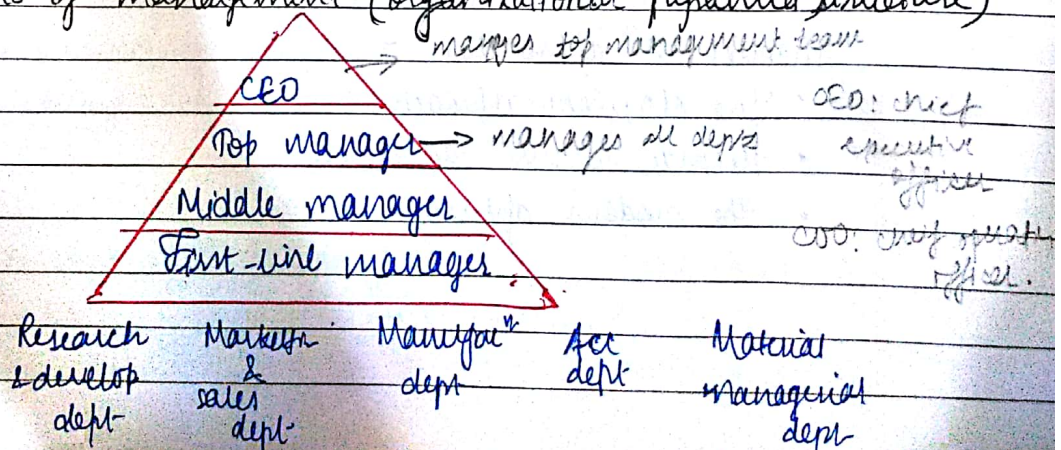 of management (organizational pyramid structure)
manages top management team
CEO
Top manager → manages all depts
Middle manager
First-line manager
CEO: chief
executive
officer
COO: chief operat.
officer.
Research
& develop
dept
Marketin
&
sales
dept.
Manufacⁿ
dept
Acc
dept
Material
Managerial
dept